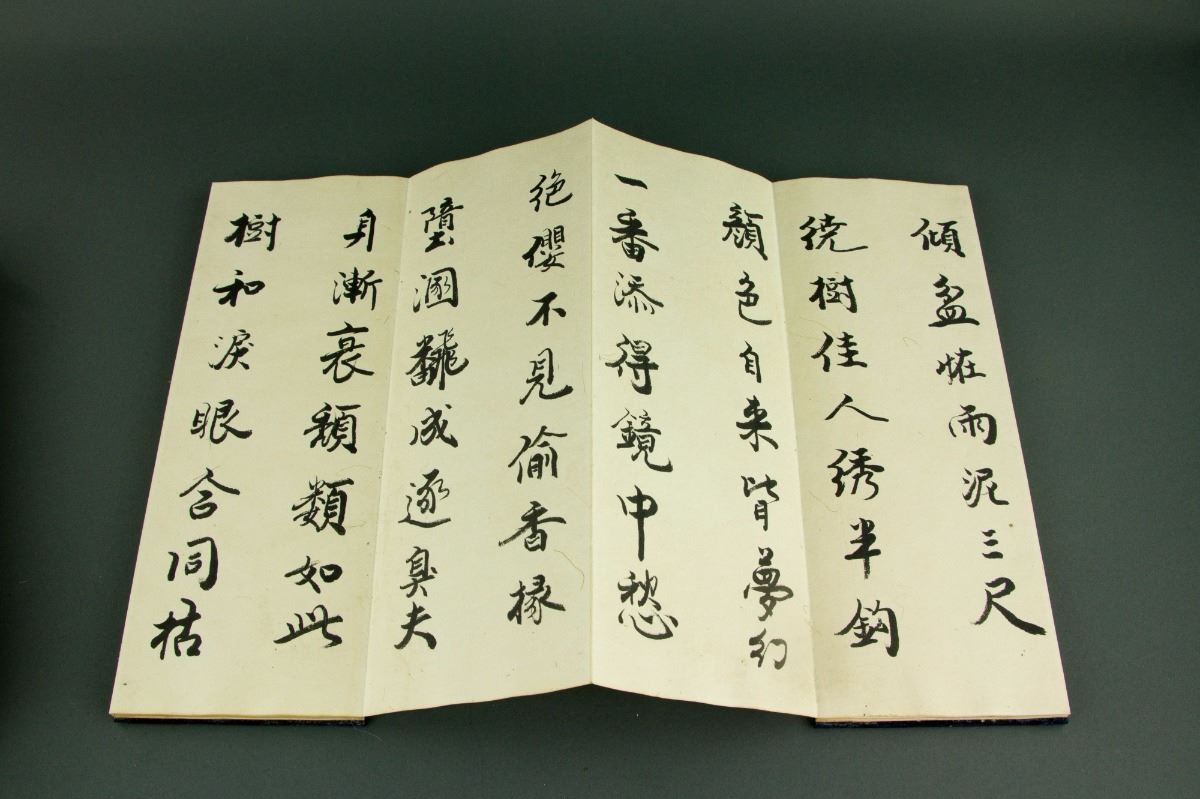 傾盆恠雨泥三尺
繞樹佳人綉半鈎
顏色自来皆夢幻
一番添得鏡中愁
絶纓不見偷香掾
墮溷飜成逐臭夫
身漸衰頹類如此
樹和淚眼合同枯